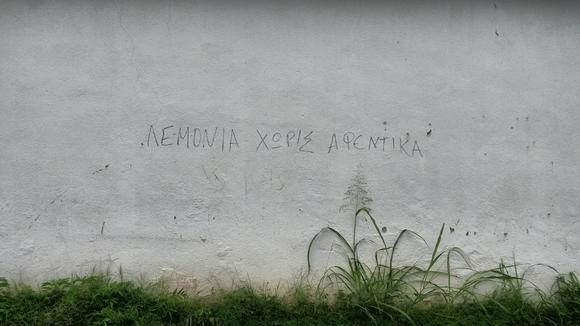 ΛΕΜΟΝΙΑ ΧΩΡΙΣ ΑΦΕΝΤΙΚΑ